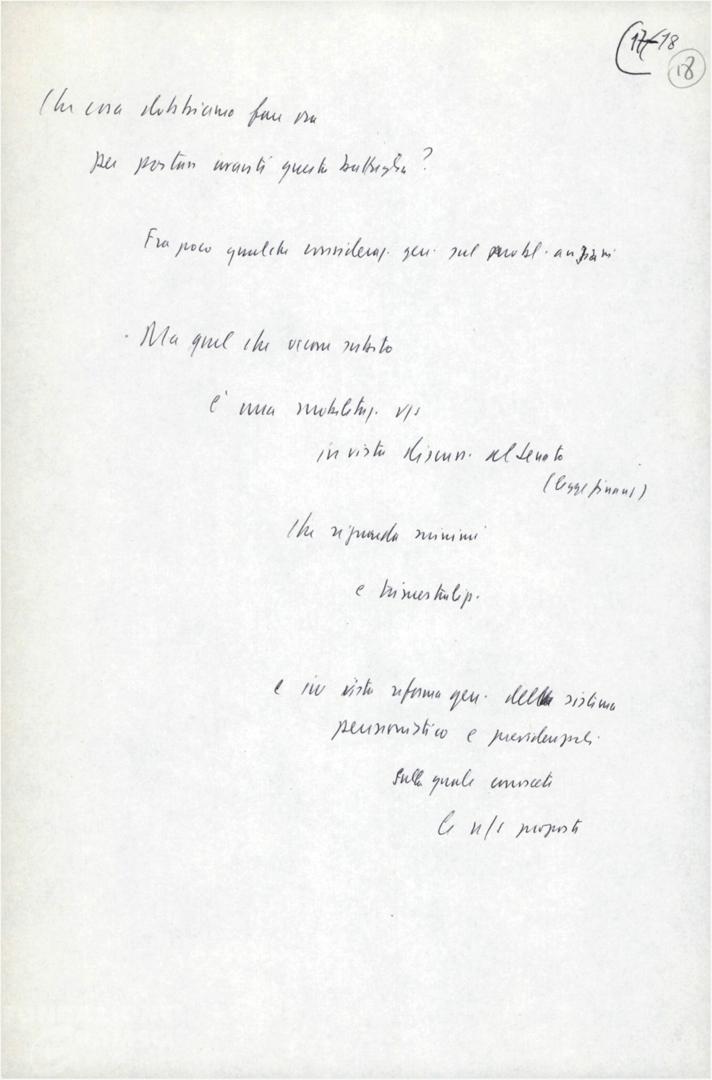 (17-18
18
Che cosa dobbiamo fare ora
per portare avanti questa battaglia?
Fra poco qualche consideraz. gen. sul probl. anziani
- Ma quel che occorre subito
è una mobilitaz.
in vista discuss. al Senato
(legge finanz)
che riguarda minimi
e trimestralizz.
e in vista riforma gen. della sistema
pensionistico e previdenziale
sulla quale conoscete
le n/s proposte